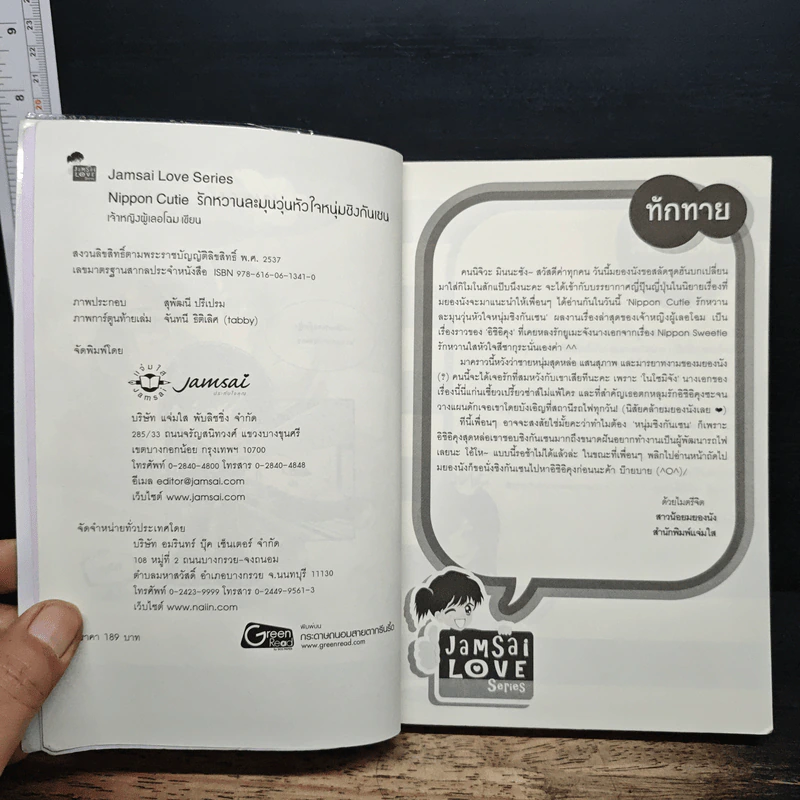 JAMSAI LOVE
Jamsai Love Series
Nippon Cutie รักหวานละมุนวุ่นหัวใจหนุ่มชิงกันเซน
เจ้าหญิงผู้เลอโฉม เขียน
สงวนลิขสิทธิ์ตามพระราชบัญญัติลิขสิทธิ์ พ.ศ. 2537
เลขมาตรฐานสากลประจำหนังสือ ISBN 978-616-06-1341-0
ภาพประกอบ สุพัฒนี ปรีเปรม
ภาพการ์ตูนท้ายเล่ม จันทนี ธิติเลิศ (tabby)
จัดพิมพ์โดย
แจ่มใส
Jamsai
jamsai
บริษัท แจ่มใส พับลิชชิ่ง จำกัด
285/33 ถนนจรัญสนิทวงศ์ แขวงบางขุนศรี
เขตบางกอกน้อย กรุงเทพฯ 10700
โทรศัพท์ 0-2840-4800 โทรสาร 0-2840-4848
อีเมล editor@jamsai.com
เว็บไซต์ www.jamsai.com
จัดจำหน่ายทั่วประเทศโดย
บริษัท อมรินทร์ บุ๊ค เซ็นเตอร์ จำกัด
108 หมู่ที่ 2 ถนนบางกรวย-จงถนอม
ตำบลมหาสวัสดิ์ อำเภอบางกรวย จ.นนทบุรี 11130
โทรศัพท์ 0-2423-9999 โทรสาร 0-2449-9561-3
เว็บไซต์ www.naiin.com
ราคา 189 บาท
Green Read
พิมพ์บน
กระดาษถนอมสายตากรีนรี้ด
www.greenread.com
ทักทาย
คนนิจิวะ มินนะซัง~ สวัสดีค่าทุกคน วันนี้มยองนังขอสลัดชุดฮันบกเปลี่ยน
มาใส่กิโมโนสักแป๊บนึงนะคะ จะได้เข้ากับบรรยากาศญี่ปุ๊นญี่ปุ่นในนิยายเรื่องที่
มยองนังจะมาแนะนำให้เพื่อนๆ ได้อ่านกันในวันนี้ 'Nippon Cutie รักหวาน
ละมุนวุ่นหัวใจหนุ่มชิงกันเซน' ผลงานเรื่องล่าสุดของเจ้าหญิงผู้เลอโฉม เป็น
เรื่องราวของ 'อิชิอิคุง' ที่เคยหลงรักยูเมะจังนางเอกจากเรื่อง Nippon Sweetie
รักหวานใสหัวใจสีซากุระนั่นเองค่า ^^
มาคราวนี้หวังว่าชายหนุ่มสุดหล่อ แสนสุภาพ และมารยาทงามของมยองนัง
(?) คนนี้จะได้เจอรักที่สมหวังกับเขาเสียทีนะคะ เพราะ 'โนโซมิจัง' นางเอกของ
เรื่องนี้นี่แก่นเซี้ยวเปรี้ยวซ่าส์ไม่แพ้ใคร และที่สำคัญเธอตกหลุมรักอิชิอิคุงซะจน
วางแผนดักเจอเขาโดยบังเอิญที่สถานีรถไฟทุกวัน! (นิสัยคล้ายมยองนังเลย ❤)
ทีนี้เพื่อนๆ อาจจะสงสัยใช่มั้ยคะว่าทำไมต้อง 'หนุ่มชิงกันเซน' ก็เพราะ
อิชิอิคุงสุดหล่อเขาชอบชิงกันเซนมากถึงขนาดฝันอยากทำงานเป็นผู้พัฒนารถไฟ
เลยนะ โอ้โห~ แบบนี้รอช้าไม่ได้แล้วล่ะ ในขณะที่เพื่อนๆ พลิกไปอ่านหน้าถัดไป
มยองนังก็ขอนั่งชิงกันเซนไปหาอิชิอิคุงก่อนนะค้า บ๊ายบาย (^O^)/
ด้วยไมตรีจิต
สาวน้อยมยองนัง
สำนักพิมพ์แจ่มใส
JAMSAI
LOVE
Series